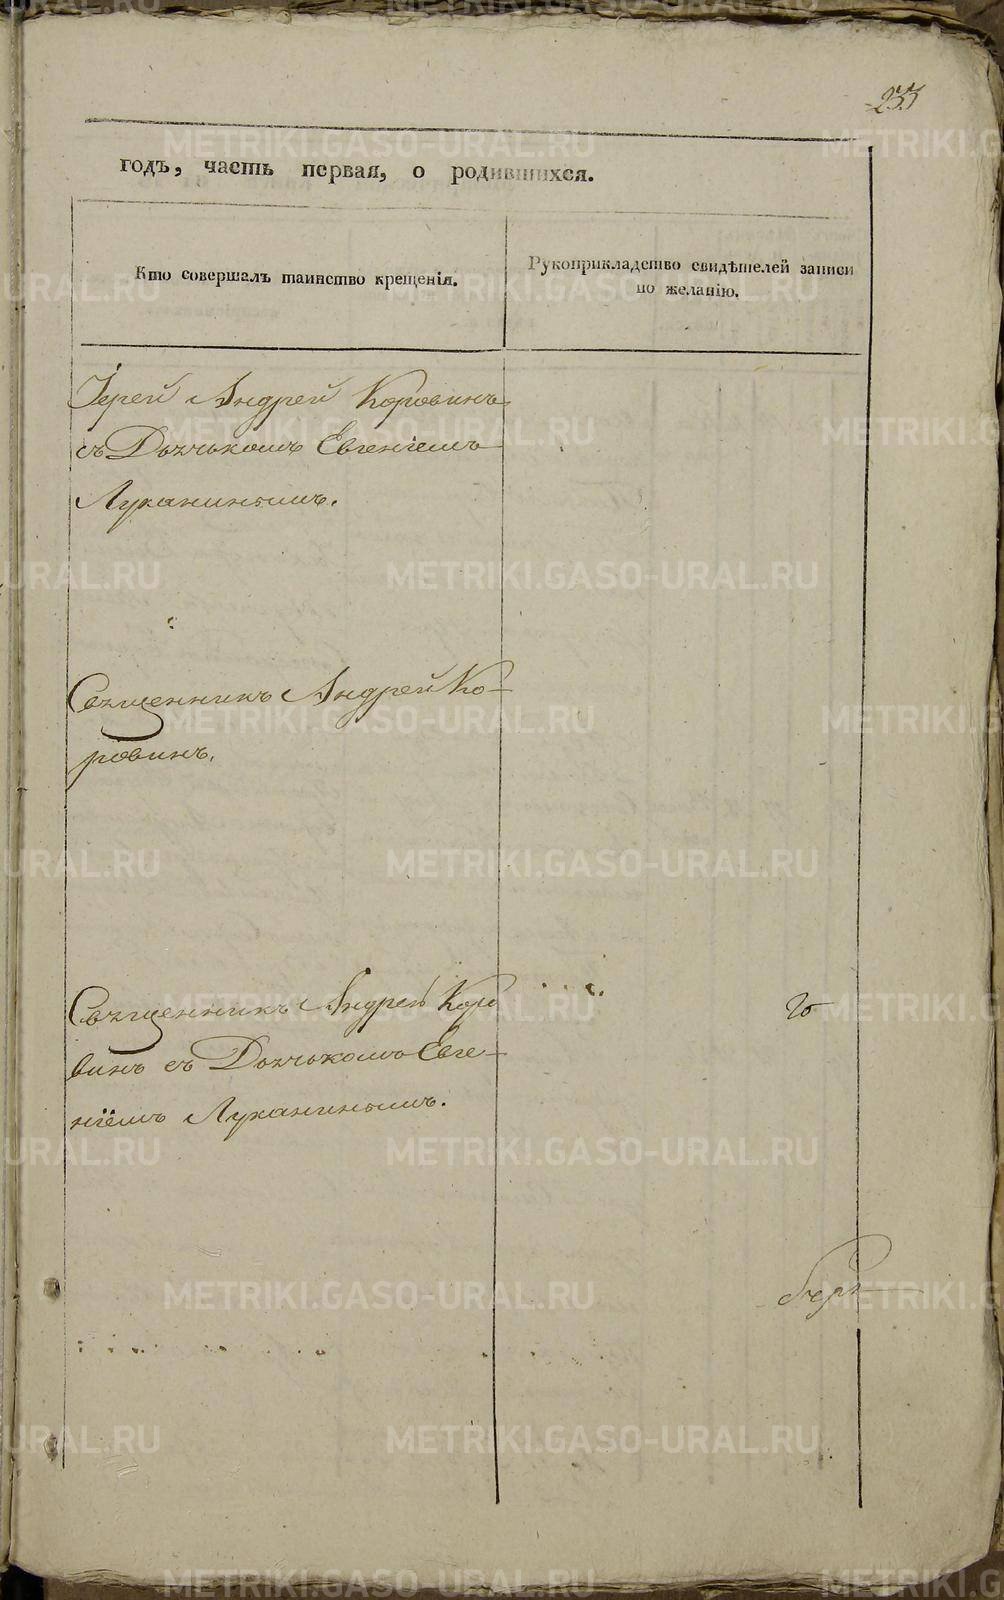 233
годъ, часть первая, о родившихся.
Кто совершалъ таинство крещенія.
Рукоприкладство свидѣтелей записи
по желанію.
Іерей Андрей Коровинъ
съ Дьячькомъ Евгеніемъ
Луканинымъ.
Священникъ Андрей Ко-
ровинъ.
Священникъ Андрей Коро
винъ съ Дьячькомъ Евге-
ніемъ Луканинымъ.
METRIKI.GASO-URAL.RU